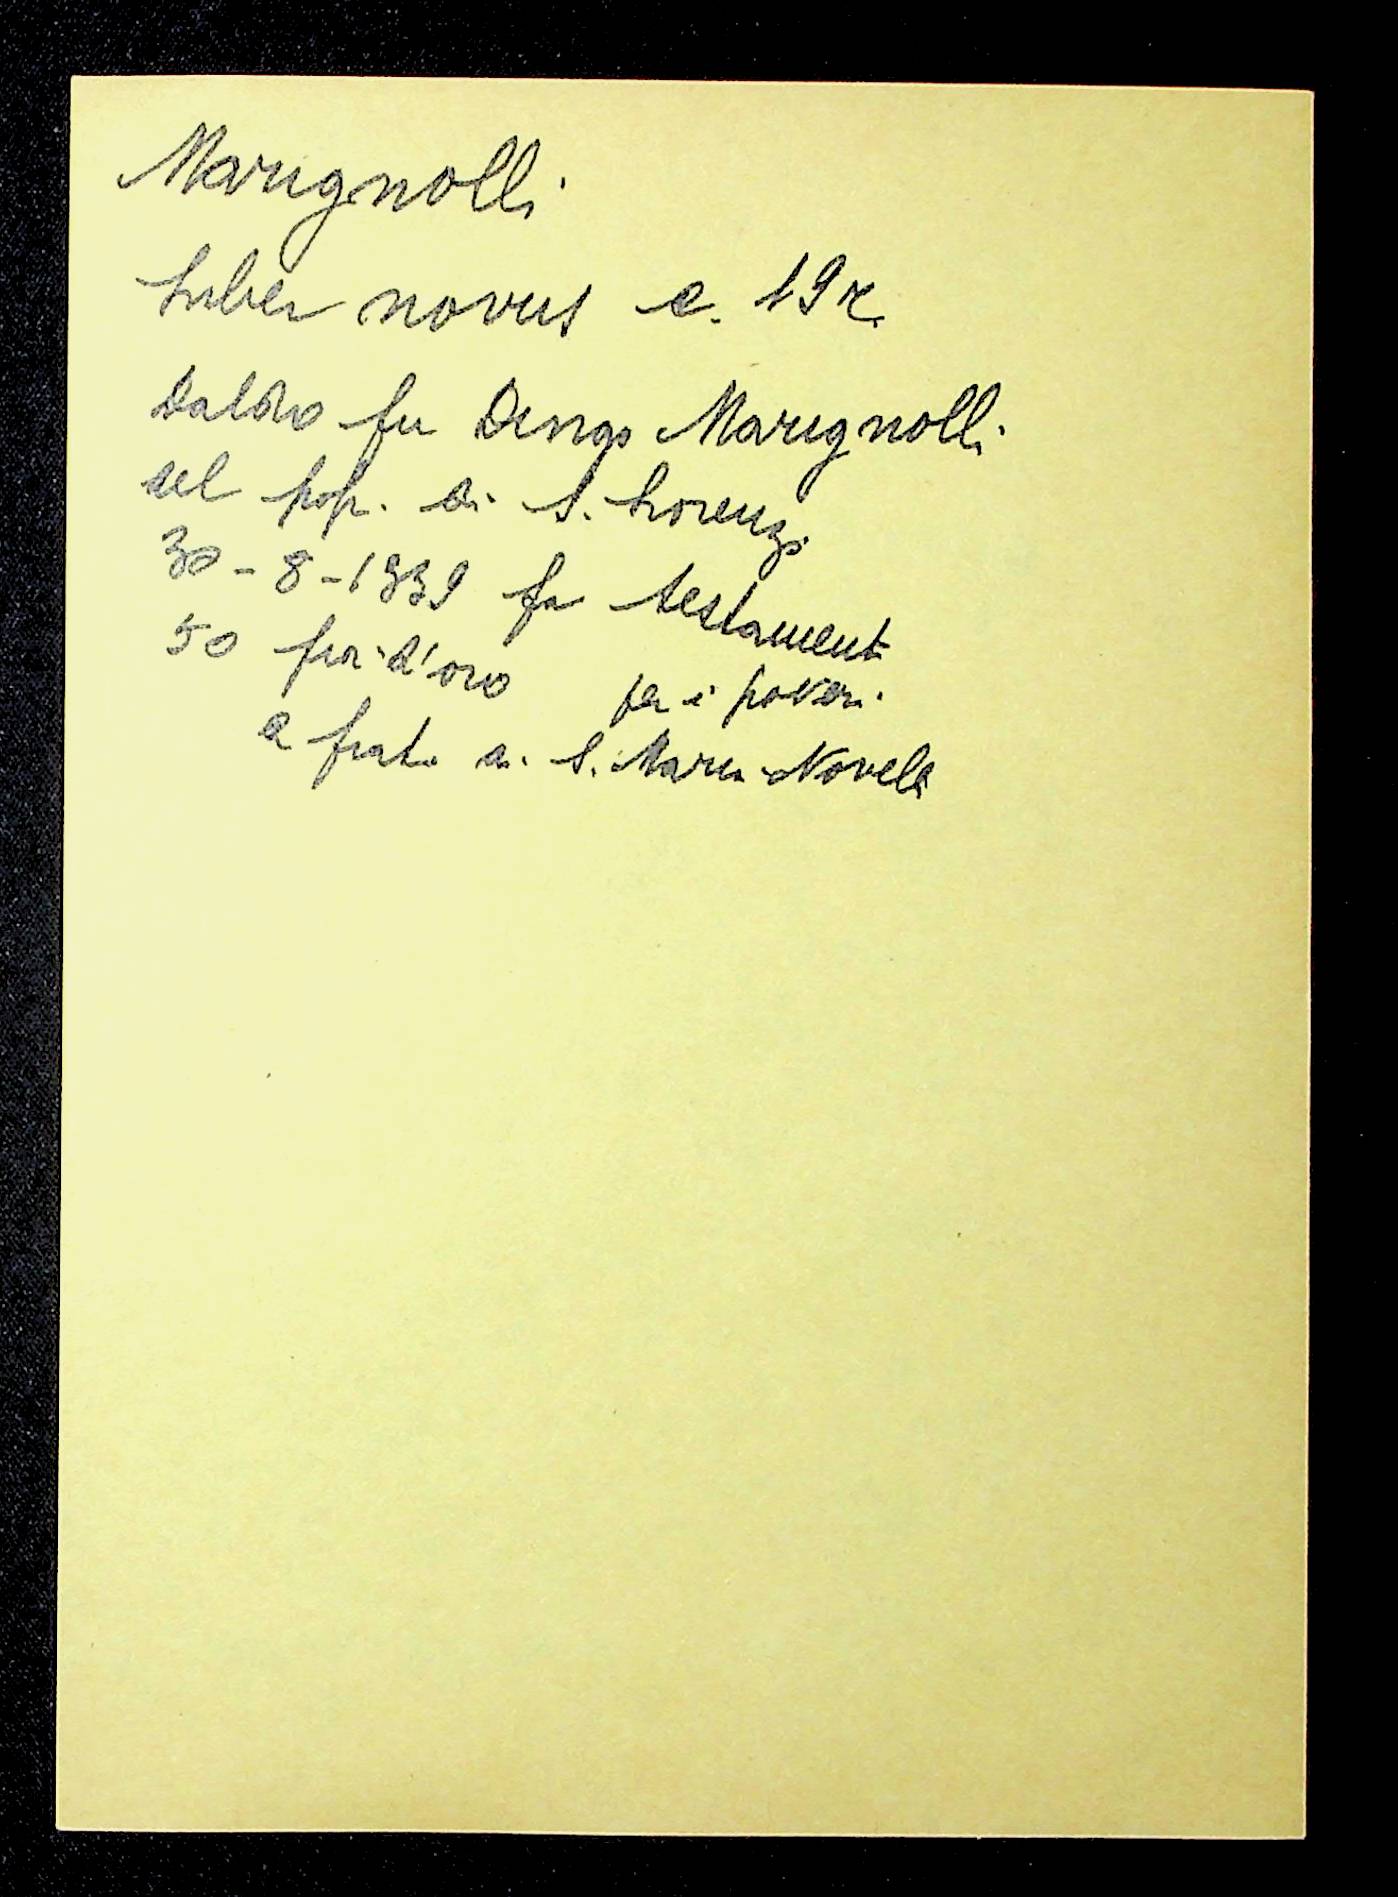 Marignolli
Liber novus c. 19 r.
Daldro fu Dingo Marignolli
del pop. di S. Lorenzo
30-8-1339 fa testament
50 fior d'oro per i poveri
e frati di S. Maria Novella